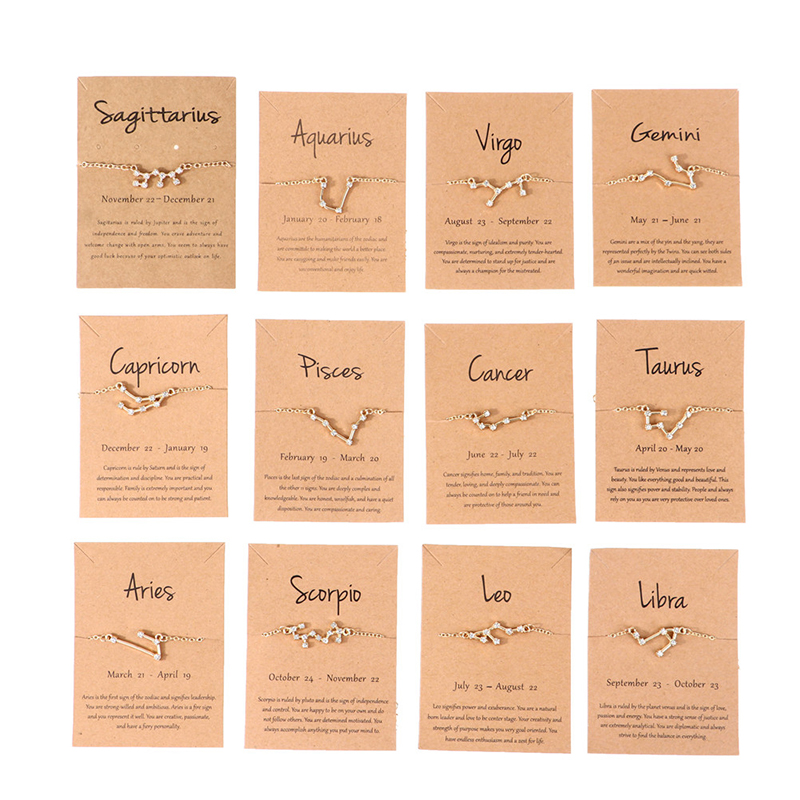 Sagittarius
November 22－December 21
Sagittarius is ruled by Jupiter and is the sign of
independence and freedom. You crave adventure and
welcome change with open arms. You seem to always have
good luck because of your optimistic outlook on life.
Aquarius
January 20 - February 18
Aquarius are the humanitarians of the zodiac and
are committed to making the world a better place.
You are easygoing and make friends easily. You are
unconventional and enjoy life.
Virgo
August 23 - September 22
Virgo is the sign of idealism and purity. You are
compassionate, nurturing, and extremely tender-hearted.
You are determined to stand up for justice and are
always a champion for the mistreated.
Gemini
May 21 － June 21
Gemini are a mix of the yin and the yang, they are
represented perfectly by the Twins. You can see both sides
of an issue and are intellectually inclined. You have a
wonderful imagination and are quick witted.
Capricorn
December 22 - January 19
Capricorn is rule by Saturn and is the sign of
determination and discipline. You are practical and
responsible. Family is extremely important and you
can always be counted on to be strong and patient.
Pisces
February 19 - March 20
Pisces is the last sign of the zodiac and a culmination of all
the other signs. You are deeply complex and
knowledgeable. You are honest, unselfish, and have a quiet
disposition. You are compassionate and caring.
Cancer
June 22 - July 22
Cancer signifies home, family, and tradition. You are
tender, loving, and deeply compassionate. You can
always be counted on to help a friend in need and
are protective of those around you.
Taurus
April 20 - May 20
Taurus is ruled by Venus and represents love and
beauty. You like everything good and beautiful. This
sign also signifies power and stability. People and always
rely on you as you are very protective over loved ones.
Aries
March 21 - April 19
Aries is the first sign of the zodiac and signifies leadership.
You are strong willed and ambitious. Aries is a fire sign
and you represent it well. You are creative, passionate,
and have a fiery personality.
Scorpio
October 24 - November 22
Scorpio is ruled by pluto and is the sign of independence
and control. You are happy to be on your own and do
not follow others. You are detemined motivated. You
always accomplish anything you put your mind to.
Leo
July 23 － August 22
Leo signifies power and exuberance. You are a natural
burn leader and love to be center stage. Your creativity and
strength of purpose makes you very goal oriented. You
have endless enthusiasm and a zest for life.
Libra
September 23 - October 23
Libra is ruled by the planet venus and is the sign of love,
passion, and energy. You have a strong sense of justice and
are extremely analytical. You are diplomatic and always
strive to find the balance in everything.